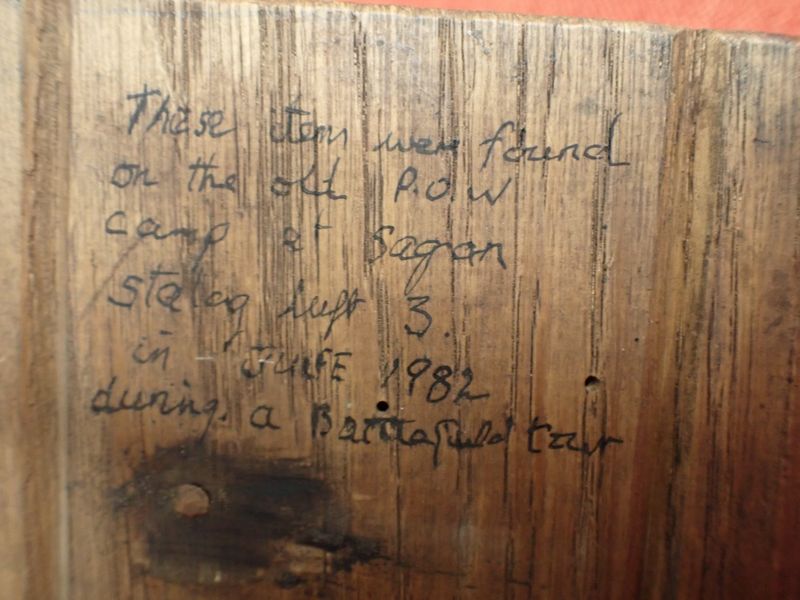 These item were found
on the old P.O.W
camp at Sagan
Stalag Luft 3.
in JUNE 1982
during a Battlefield tour